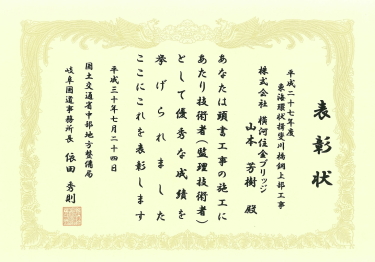 表彰状
平成二十七年度
東海環状揖斐川橋鋼上部工事
株式会社 横河住金ブリッジ
山本 芳樹 殿
あなたは頭書工事の施工に
あたり技術者(監理技術者)
として優秀な成績を
挙げられました
ここにこれを表彰します
平成三十年七月二十四日
国土交通省中部地方整備局
岐阜国道事務所長 依田 秀則